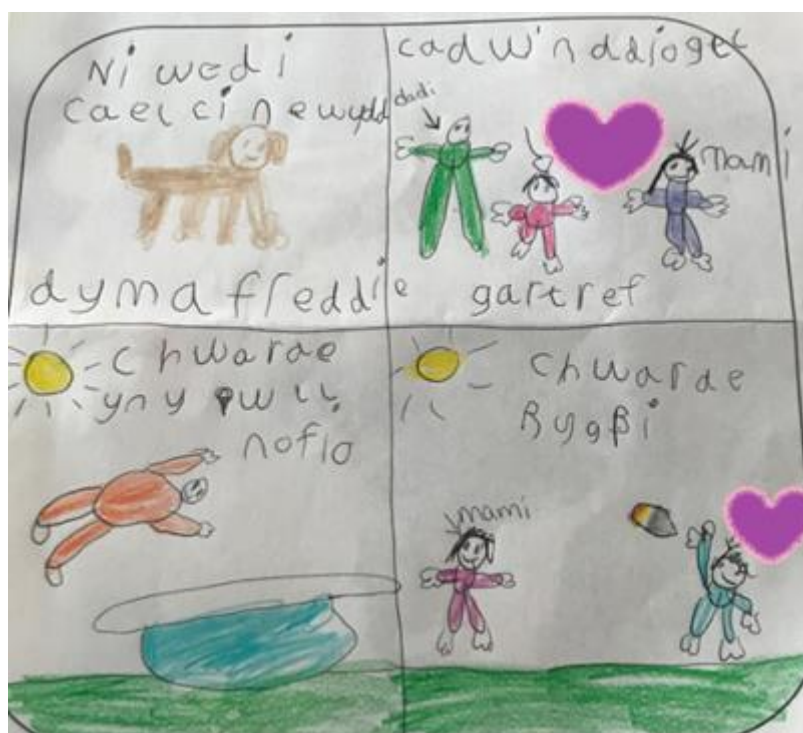 Ni wedi
cael ci newydd
dyma freddie
cadw'n ddioget
dadi
mami
gartref
chwarae
yn y pwll
nofio
chwarae
Rygbi
mami